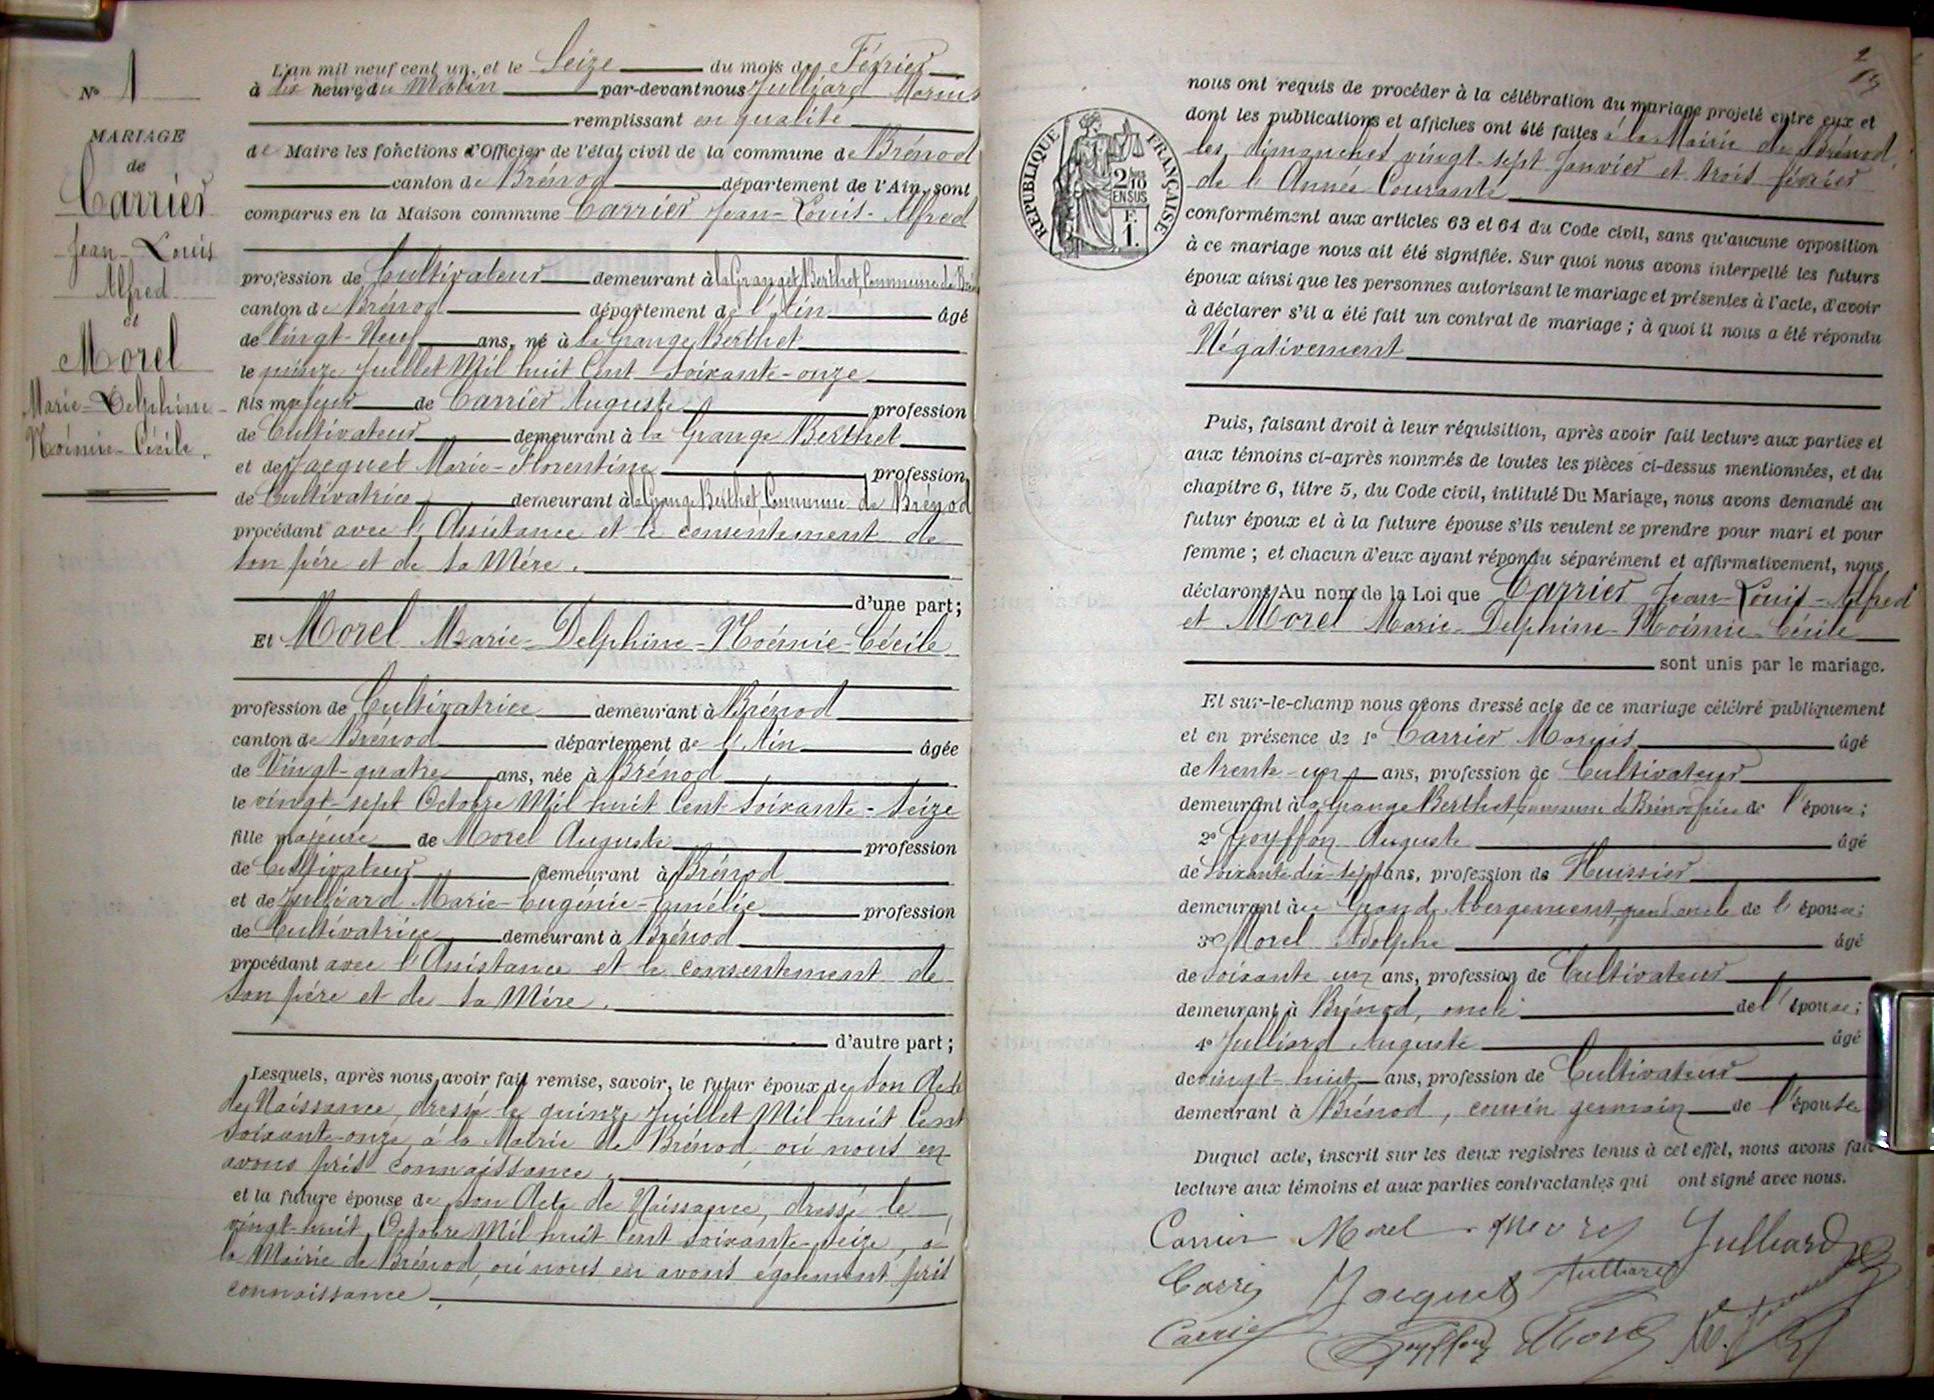 N° 1
MARIAGE
de
Carrier
Jean-Louis
Alfred
et
Morel
Marie-Delphine-
Noémie-Cécile.
L'an mil neuf cent un, et le Seize du mois de Février
à dix heures du Matin par-devant nous Julliard Marius
remplissant en qualité
de Maire les fonctions d'Officier de l'état civil de la commune de Brénod
canton de Brénod département de l'Ain, sont
comparus en la Maison commune Carrier Jean-Louis-Alfred
profession de Cultivateur demeurant à la Grange Berthet, Commune de
canton de Brénod département de l'Ain âgé
de Vingt-Neuf ans, né à la Grange Berthet
le quinze Juillet Mil huit Cent soixante-onze
fils majeur de Carrier Auguste profession
de Cultivateur demeurant à la Grange Berthet
et de Jacquet Marie-Florentine profession
de Cultivatrice demeurant à la Grange Berthet, Commune de Brénod
procédant avec l'Assistance et le consentement de
son père et de sa Mère.
d'une part;
Et Morel Marie-Delphine-Noémie-Cécile
profession de Cultivatrice demeurant à Brénod
canton de Brénod département de l'Ain âgée
de Vingt-quatre ans, née à Brénod
le vingt-sept Octobre Mil huit Cent soixante-seize
fille majeure de Morel Auguste profession
de Cultivateur demeurant à Brénod
et de Julliard Marie-Eugénie-Amélie profession
de Cultivatrice demeurant à Brénod
procédant avec l'Assistance et le consentement de
son père et de sa Mère.
d'autre part;
Lesquels, après nous avoir fait remise, savoir, le futur époux de son Acte
de Naissance, dressé le quinze Juillet Mil huit Cent
soixante-onze, à la Mairie de Brénod, où nous en
avons pris connaissance.
et la future épouse de son Acte de Naissance, dressé le
vingt-huit Octobre Mil huit Cent soixante-seize, à
la Mairie de Brénod, où nous en avons également pris
connaissance.
2
RÉPUBLIQUE FRANÇAISE
2/10
EN SUS
F.
1.
nous ont requis de procéder à la célébration du mariage projeté entre eux et
dont les publications et affiches ont été faites à la Mairie de Brénod,
les dimanches vingt-sept Janvier et trois février
de l'Année Courante
conformément aux articles 63 et 64 du Code civil, sans qu'aucune opposition
à ce mariage nous ait été signifiée. Sur quoi nous avons interpellé les futurs
époux ainsi que les personnes autorisant le mariage et présentes à l'acte, d'avoir
à déclarer s'il a été fait un contrat de mariage; à quoi il nous a été répondu
Négativement
Puis, faisant droit à leur réquisition, après avoir fait lecture aux parties et
aux témoins ci-après nommés de toutes les pièces ci-dessus mentionnées, et du
chapitre 6, titre 5, du Code civil, intitulé Du Mariage, nous avons demandé au
futur époux et à la future épouse s'ils veulent se prendre pour mari et pour
femme; et chacun d'eux ayant répondu séparément et affirmativement, nous
déclarons Au nom de la Loi que Carrier Jean-Louis-Alfred
et Morel Marie-Delphine-Noémie-Cécile
sont unis par le mariage.
Et sur-le-champ nous avons dressé acte de ce mariage célébré publiquement
et en présence de 1° Carrier Marius âgé
de trente-un ans, profession de Cultivateur
demeurant à la Grange Berthet, commune de Brénod frère de l'époux;
2° Goyffon Auguste âgé
de soixante-dix-sept ans, profession de Huissier
demeurant au Grand Abergement, grand oncle de l'époux;
3° Morel Adolphe âgé
de soixante un ans, profession de Cultivateur
demeurant à Brénod, oncle de l'épouse;
4° Julliard Auguste âgé
de vingt-huit ans, profession de Cultivateur
demeurant à Brénod, cousin germain de l'épouse
Duquel acte, inscrit sur les deux registres tenus à cet effet, nous avons fait
lecture aux témoins et aux parties contractantes qui ont signé avec nous.
Carrier Morel Julliard
Jacquet Julliard
Carrier Goyffon Morel